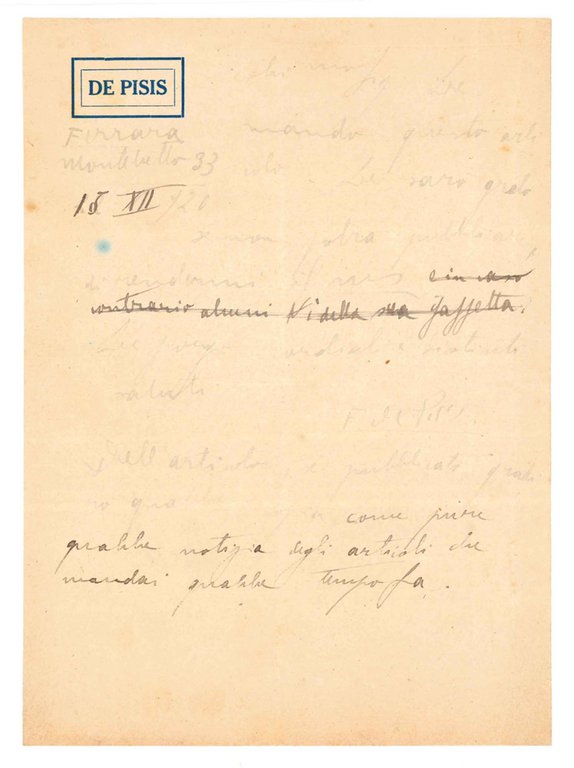 DE PISIS
Ferrara
Montebello 33
mando questo arti
colo. Le sarò grato
18 XII /20
se non potrà pubblicarl
di rendermi il e in caso
contrario alcuni N i della sua Gazzetta.
Le porgo cordiali e distinti
saluti
F. de Pisis
dell'articolo, se pubblicato, gradi
come pure
qualche notizia degli articoli che
mandai qualche tempo fa.